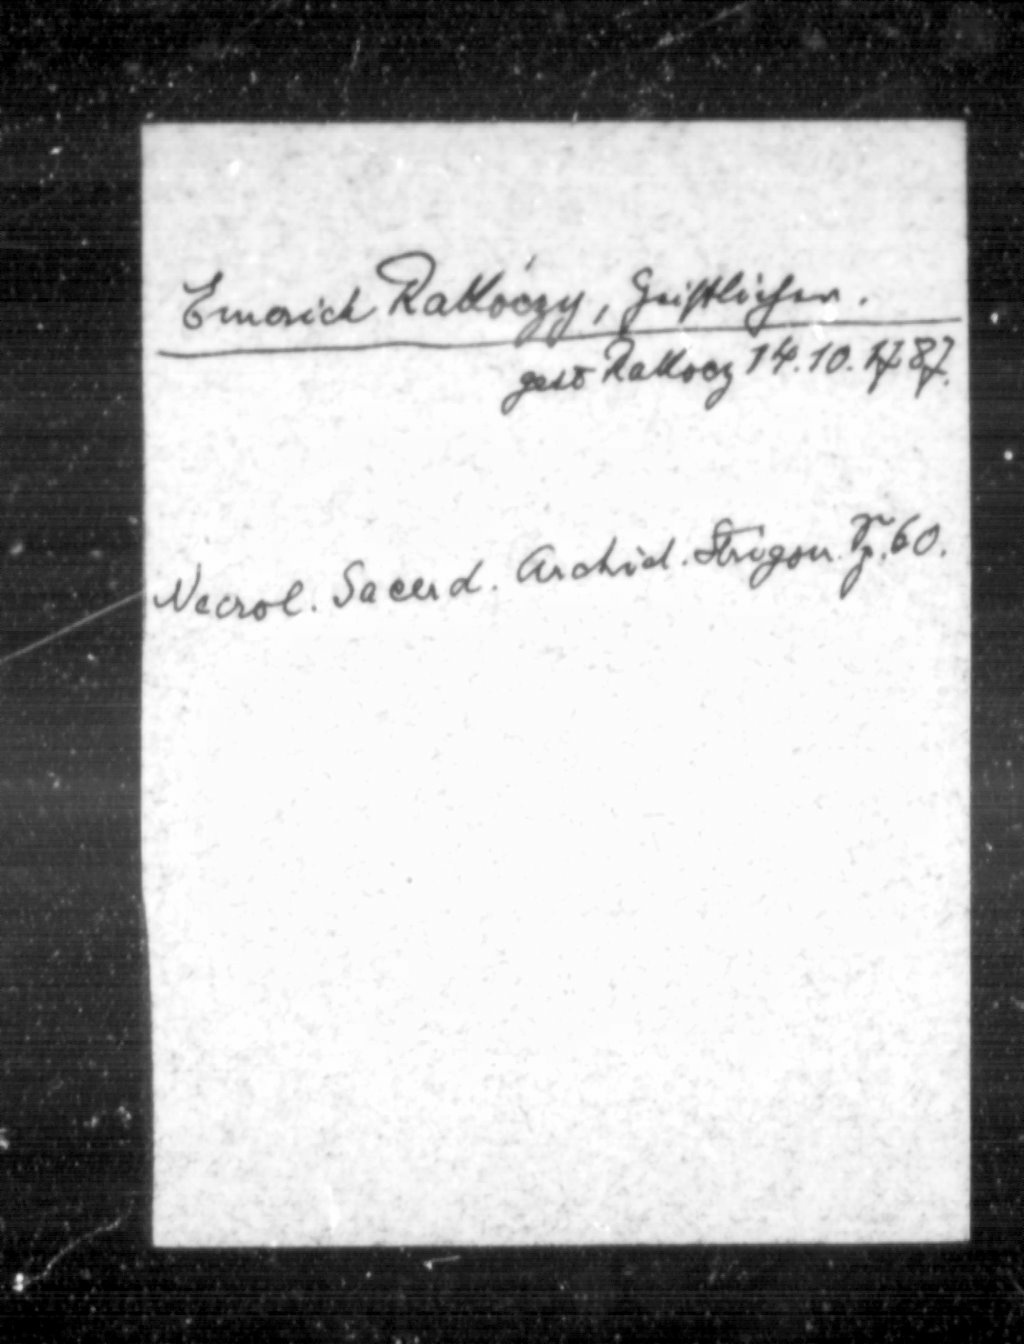 Emerich Rakkóczy, Geistlicher.
gest Rakkocz 14.10.1787.
Necrol. Sacerd. Archid. Strigon. p. 60.